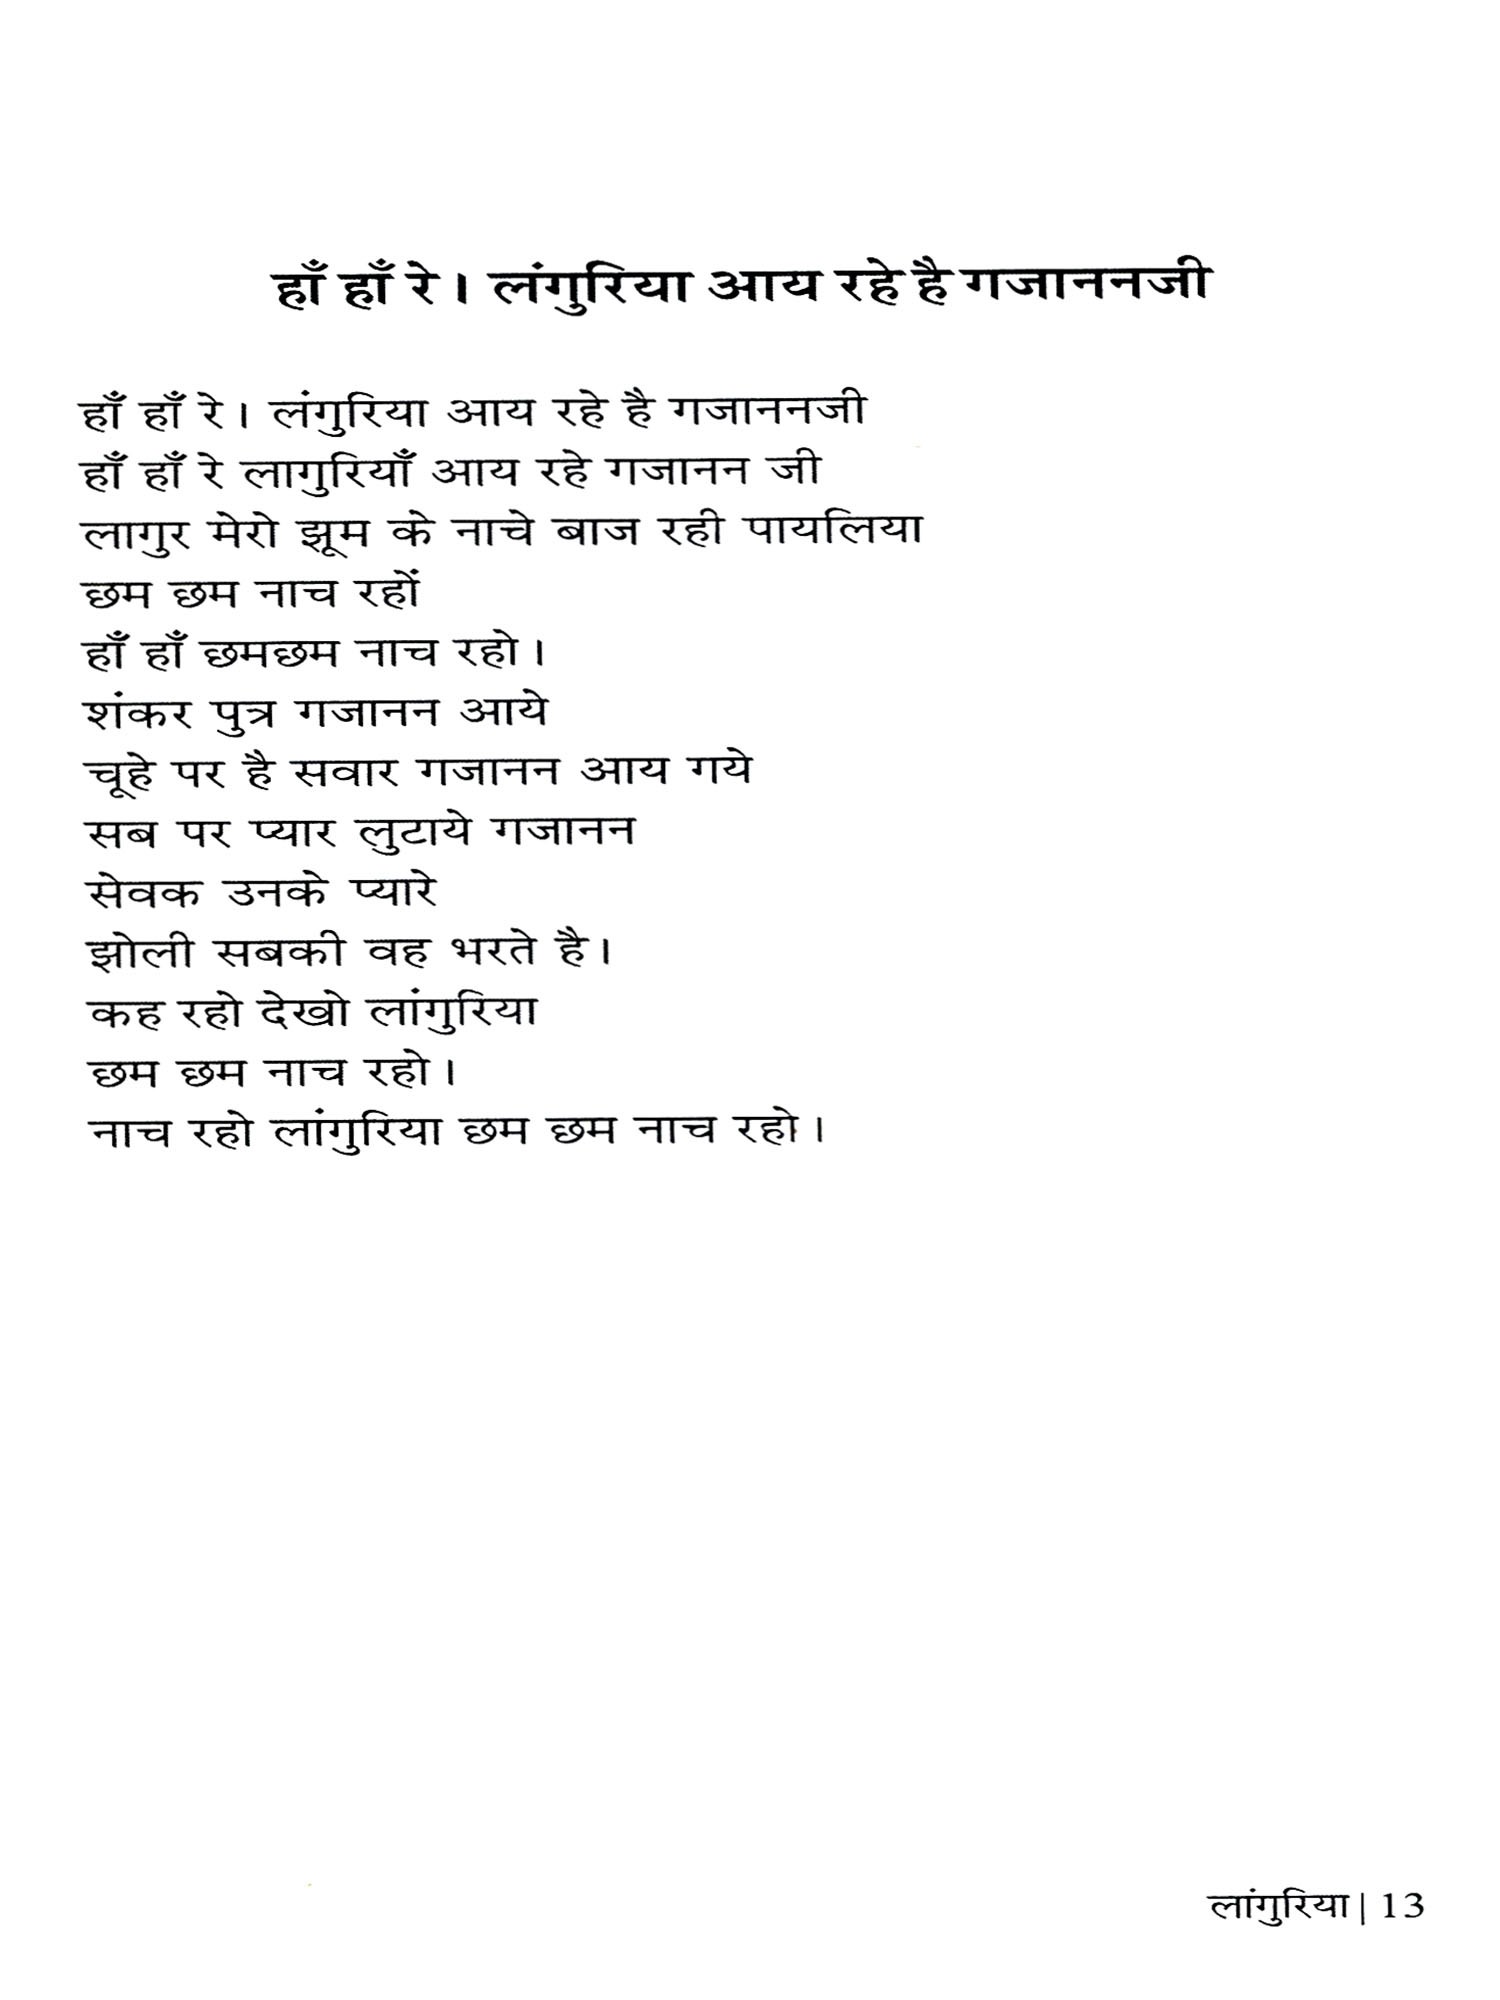 हाँ हाँ रे। लंगुरिया आय रहे है गजाननजी
हाँ हाँ रे। लंगुरिया आय रहे है गजाननजी
हाँ हाँ रे लागुरियाँ आय रहे गजानन जी
लागुर मेरो झूम के नाचे बाज रही पायलिया
छम छम नाच रहों
हाँ हाँ छमछम नाच रहो।
शंकर पुत्र गजानन आये
चूहे पर है सवार गजानन आय गये
सब पर प्यार लुटाये गजानन
सेवक उनके प्यारे
झोली सबकी वह भरते है।
कह रहो देखो लांगुरिया
छम छम नाच रहो।
नाच रहो लांगुरिया छम छम नाच रहो।
लांगुरिया| 13